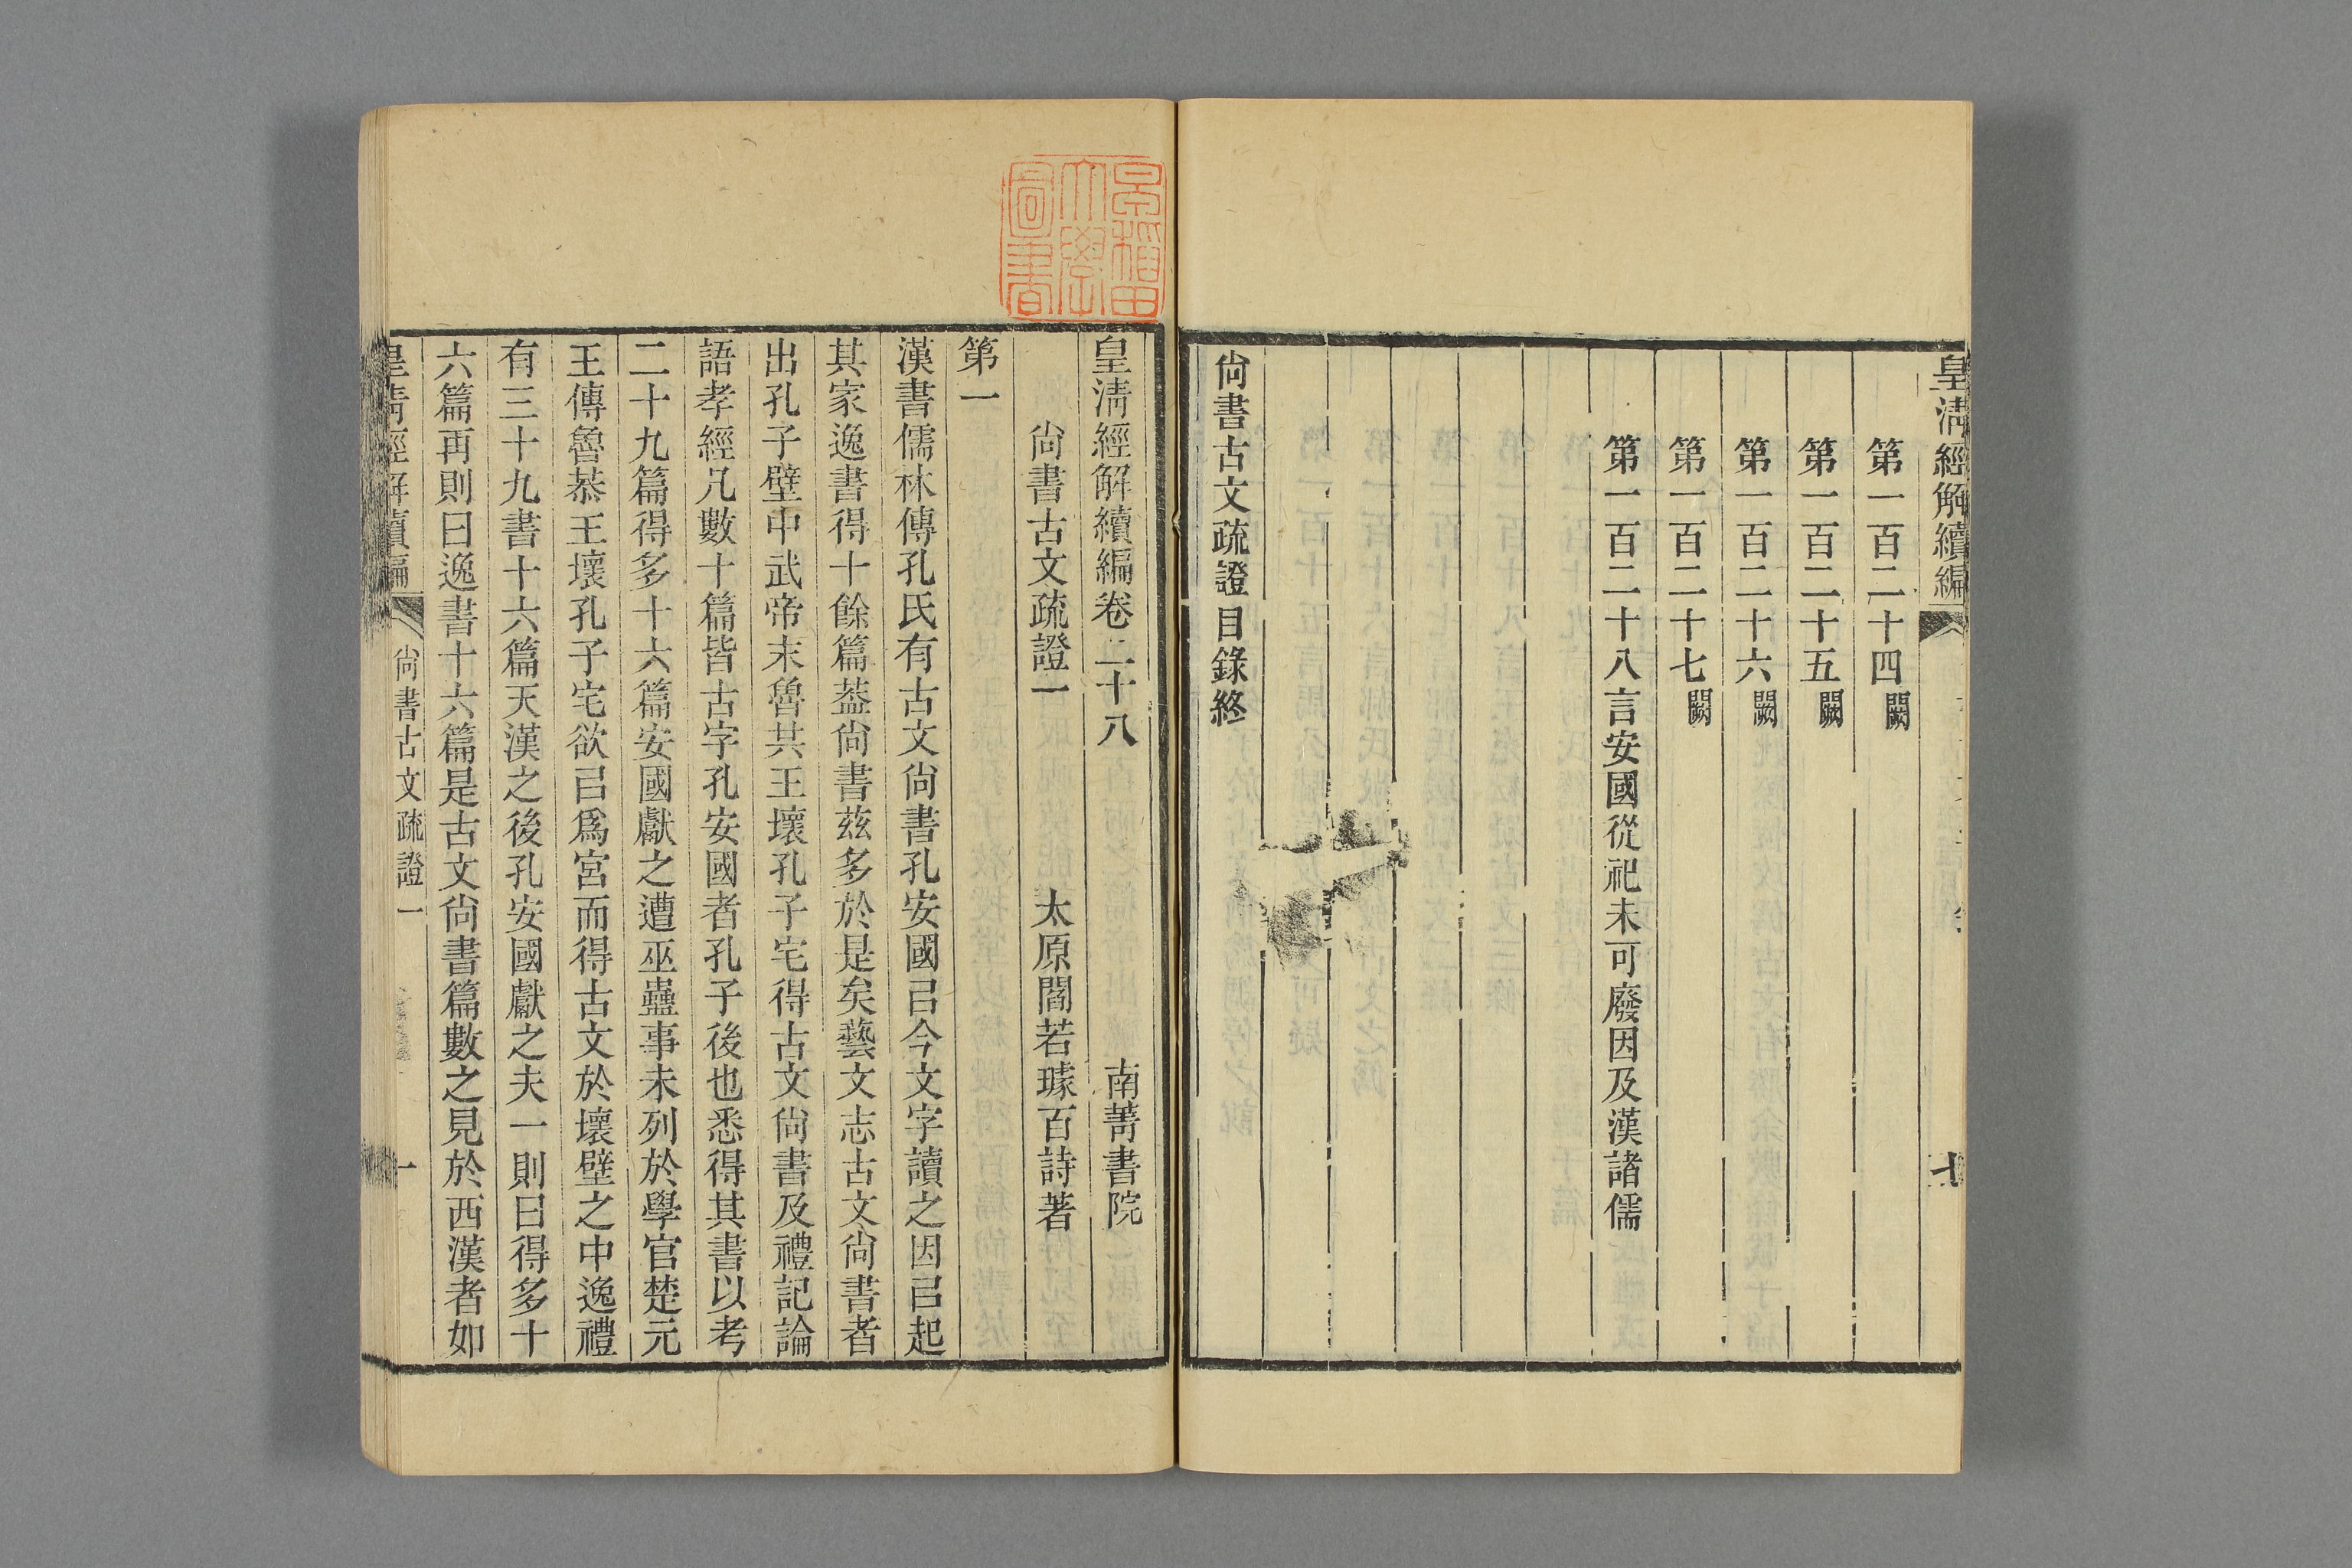 皇淸經解續編
第一百二十四闕
第一百二十五闕
第一百二十六闕
第一百二十七闕
第一百二十八言安國從祀未可廢因及漢諸儒
尙書古文疏證目錄終
七
早稻田大學圖書
皇淸經解續編卷二十八
南菁書院
尙書古文疏證一
太原閻若璩百詩著
第一
漢書儒林傳孔氏有古文尙書孔安國㠯今文字讀之因㠯起
其家逸書得十餘篇葢尙書茲多於是矣藝文志古文尙書者
出孔子壁中武帝末魯共王壞孔子宅得古文尙書及禮記論
語孝經凡數十篇皆古字孔安國者孔子後也悉得其書以考
二十九篇得多十六篇安國獻之遭巫蠱事未列於學官楚元
王傳魯恭王壞孔子宅欲㠯爲宮而得古文於壞壁之中逸禮
有三十九書十六篇天漢之後孔安國獻之夫一則曰得多十
六篇再則曰逸書十六篇是古文尙書篇數之見於西漢者如
皇淸經解續編
尙書古文疏證一
一